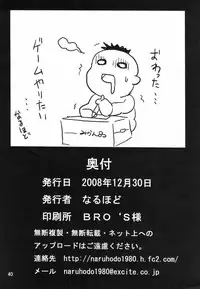 おわった…
ゲームやりたい
なるほど
みかん
奥付
発行日　2008年12月30日
発行者　なるほど
印刷所　ＢＲＯ‘Ｓ様
無断複製・無断転載・ネット上への
アップロードはご遠慮ください。
連絡先　http://naruhodo1980.h.fc2.com/
メール　naruhodo1980@excite.co.jp
40